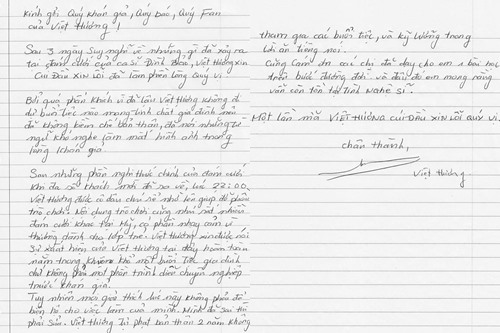 Kính gởi Quý khán giả, Quý báo, Quý Fan
của Việt Hương!
Sau 3 ngày suy nghĩ về những gì đã xảy ra
tại đám cưới của ca sĩ Đinh Bảo, Việt Hương xin
Cúi Đầu XIN LỖI đã làm phiền lòng Quý vị.
Bởi quá phấn khích vì đã lâu Việt Hương không đi
dự buổi tiệc nào mang tính chất gia đình nên
đã không kềm chế bản thân, đã nói những từ
ngữ khó nghe làm mất hình ảnh trong
lòng khán giả.
Sau những phần nghi thức chính của đám cưới
khi đa số khách mời đã ra về, lúc 22:00,
Việt Hương được cô dâu chú rể nhờ lên giúp để
trò chơi. Nội dung trò chơi cũng như rất nhiều
đám cưới khác tại Mỹ, có phần nhạy cảm vì
thường dành cho lớp trẻ. Việt Hương xin được nói
sự xuất hiện của Việt Hương tại đây hoàn toàn
nằm trong khuôn khổ một buổi tiệc gia đình
chứ không phải một phần trình diễn chuyên nghiệp
trước khán giả.
Tuy nhiên mọi giải thích lúc này không phải để
biện hộ cho việc làm của mình. Mình đã sai thì
phải sửa. Việt Hương tự phạt bản thân 2 năm không
tham gia các buổi tiệc, và kỹ lưỡng trong
lời ăn tiếng nói.
Cũng cảm ơn các chị đã dạy cho em 1 bài học
trên bước đường đời và điều đó em mong rằng
vẫn còn tồn tại tình nghệ sĩ.
Một lần nữa VIỆT HƯƠNG CÚI ĐẦU XIN LỖI QUÝ VỊ.
chân thành,
Việt Hương